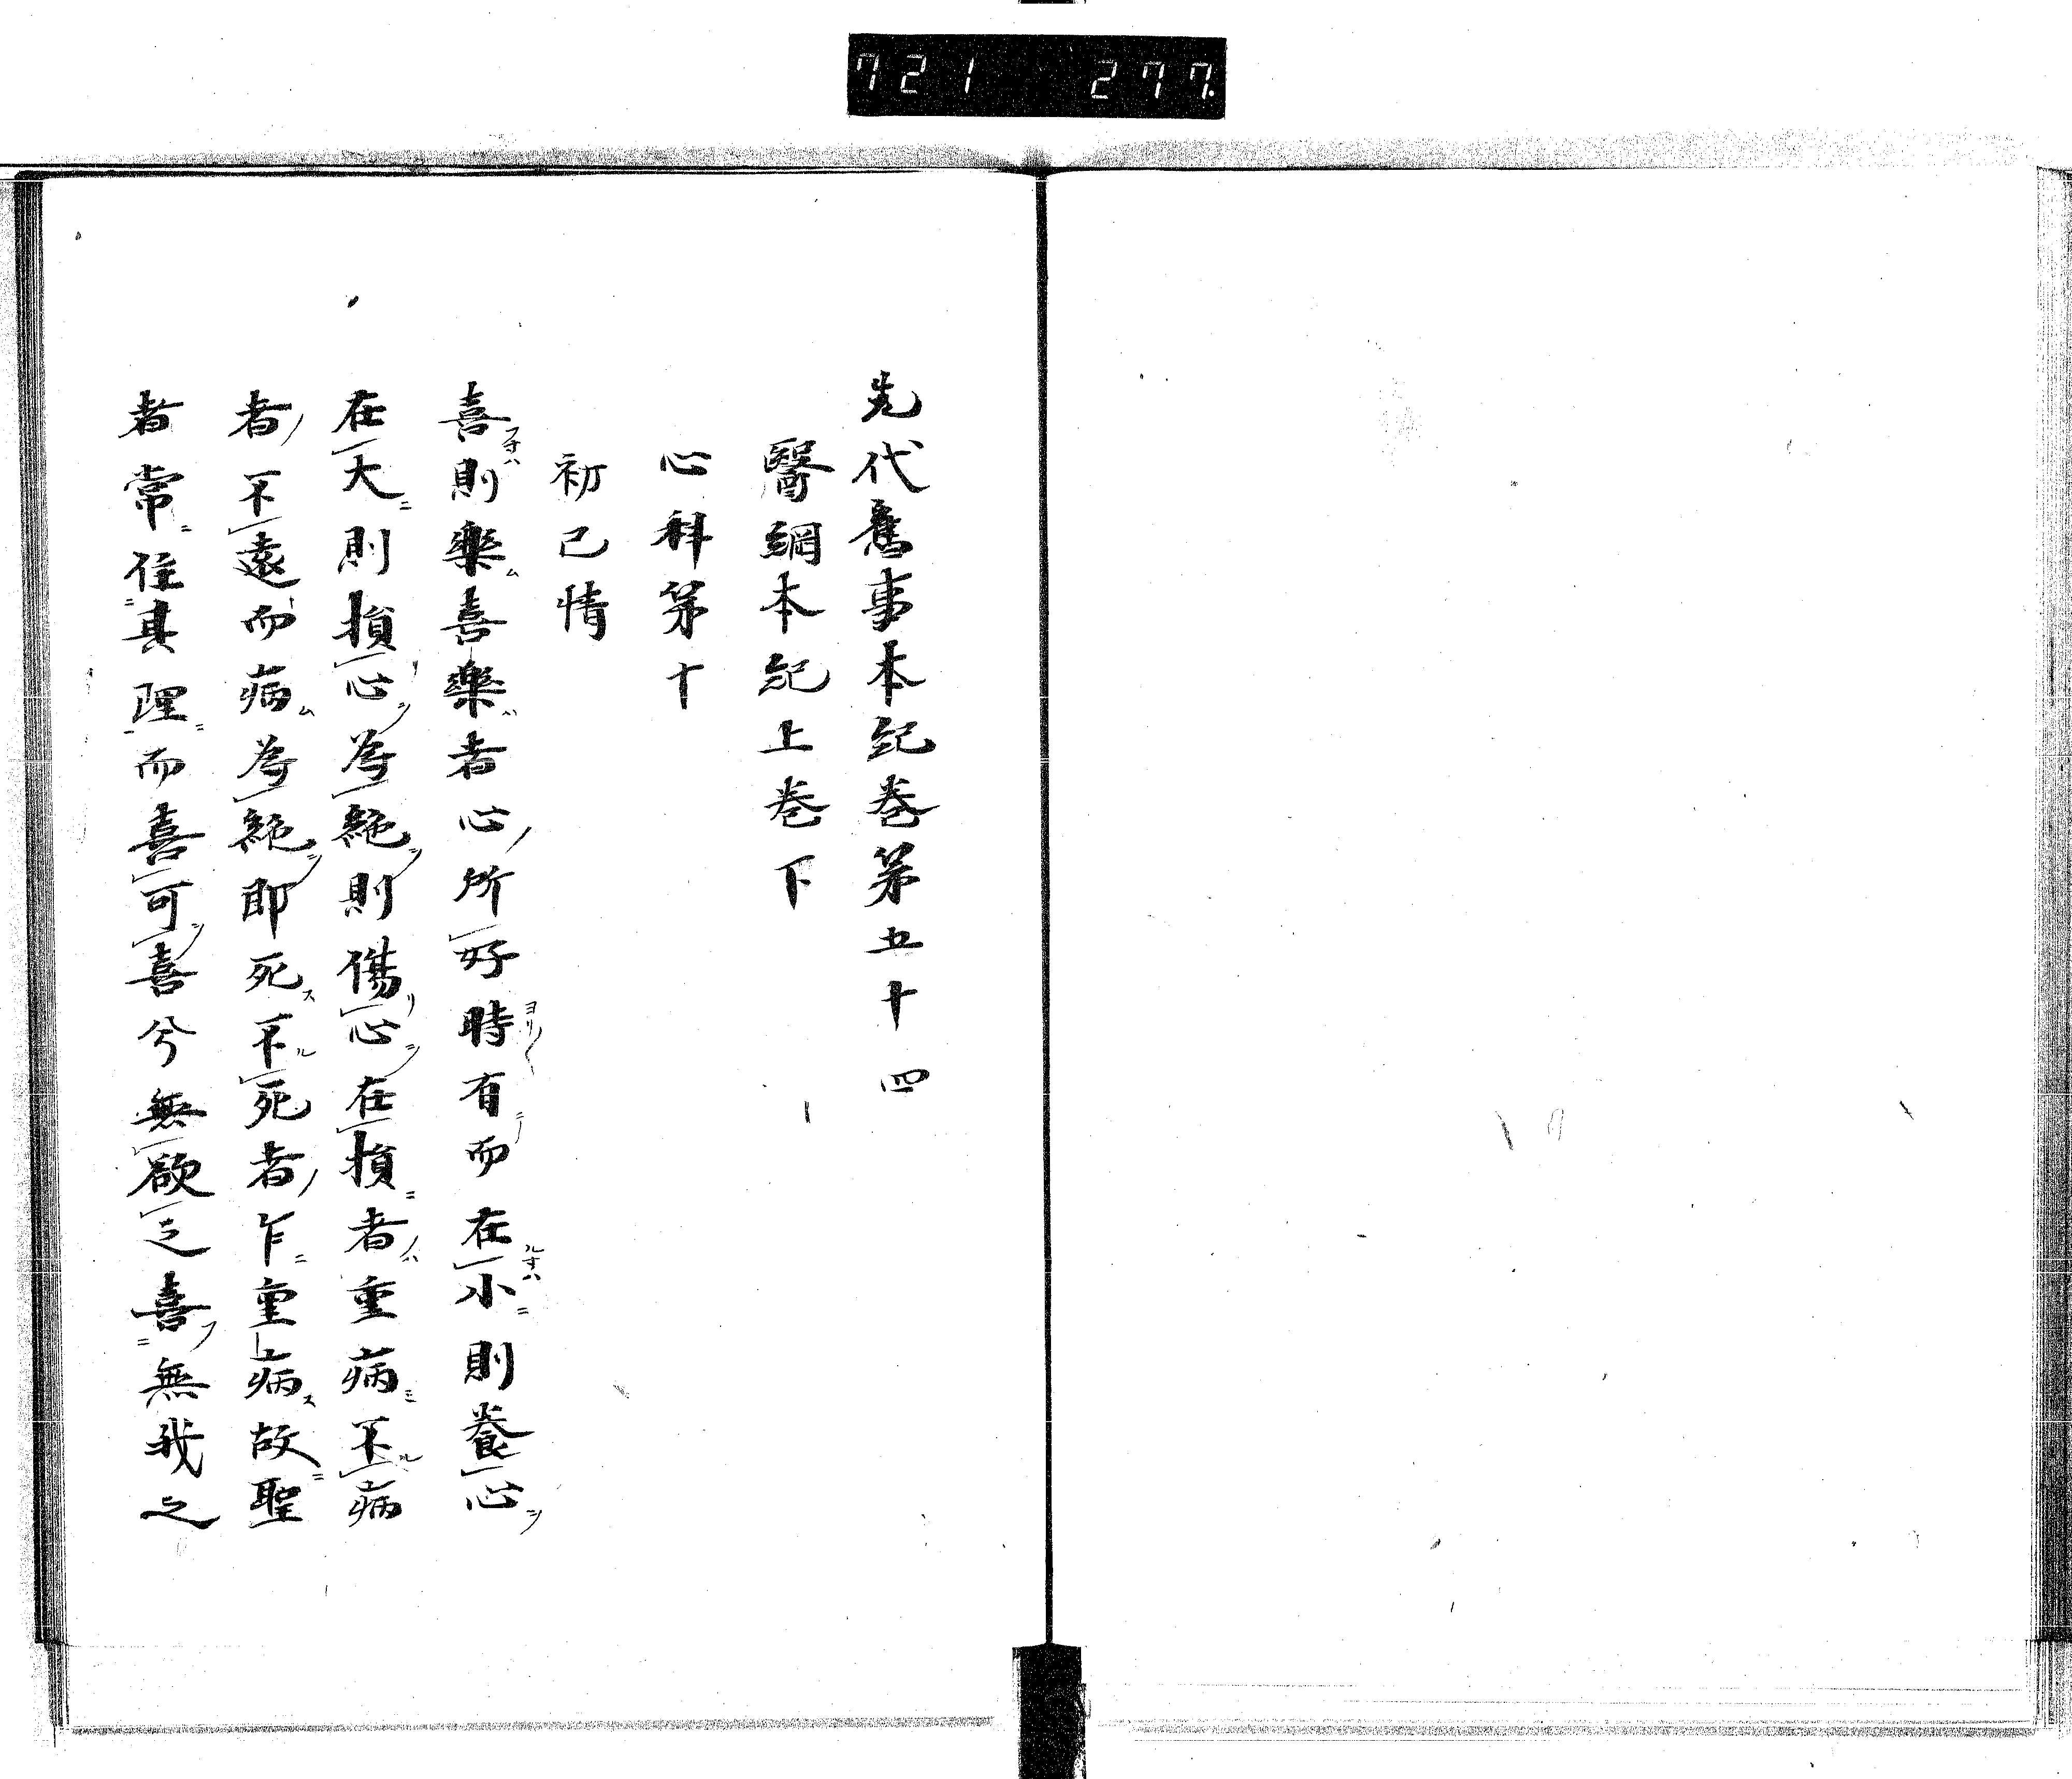 721 277.
先代舊事本紀巻第五十四
醫綱本紀上巻下
心科第十
初己情
喜則樂喜樂者心所好時有而在小則養心
在大則損心為絶則傷心在損者重病不病
者不遠而病為絶即死不死者乍重病故聖
者常住真理而喜可喜兮無欲之喜無我之